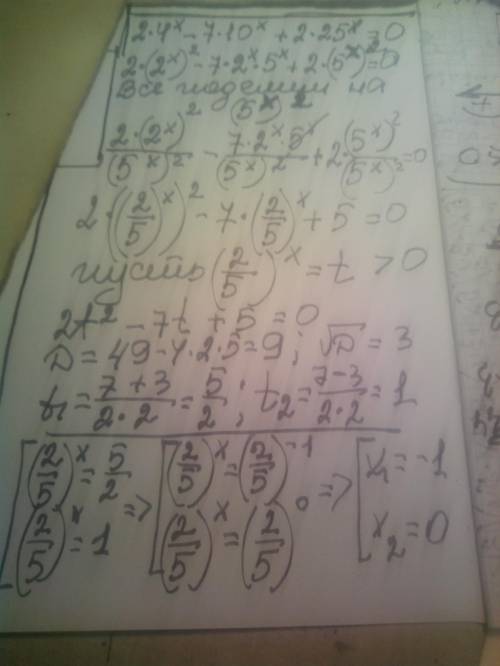 2·4ˣ - 7·10ˣ + 2·25ˣ = 0
2·(2ˣ)² - 7·2ˣ·5ˣ + 2·(5ˣ)² = 0
Все поделим на (5ˣ)²
2·(2ˣ)²/(5ˣ)² - 7·2ˣ·5ˣ/(5ˣ)² + 2·(5ˣ)²/(5ˣ)² = 0
2·((2/5)ˣ)² - 7·(2/5)ˣ + 5 = 0
пусть (2/5)ˣ = t > 0
2t² - 7t + 5 = 0
D = 49 - 4·2·5 = 9; √D = 3
t₁ = (7+3)/(2·2) = 5/2; t₂ = (7-3)/(2·2) = 1
[(2/5)ˣ = 5/2 => [(2/5)ˣ = (2/5)⁻¹ => [x₁ = -1
(2/5)ˣ = 1 (2/5)ˣ = (2/5)⁰ x₂ = 0